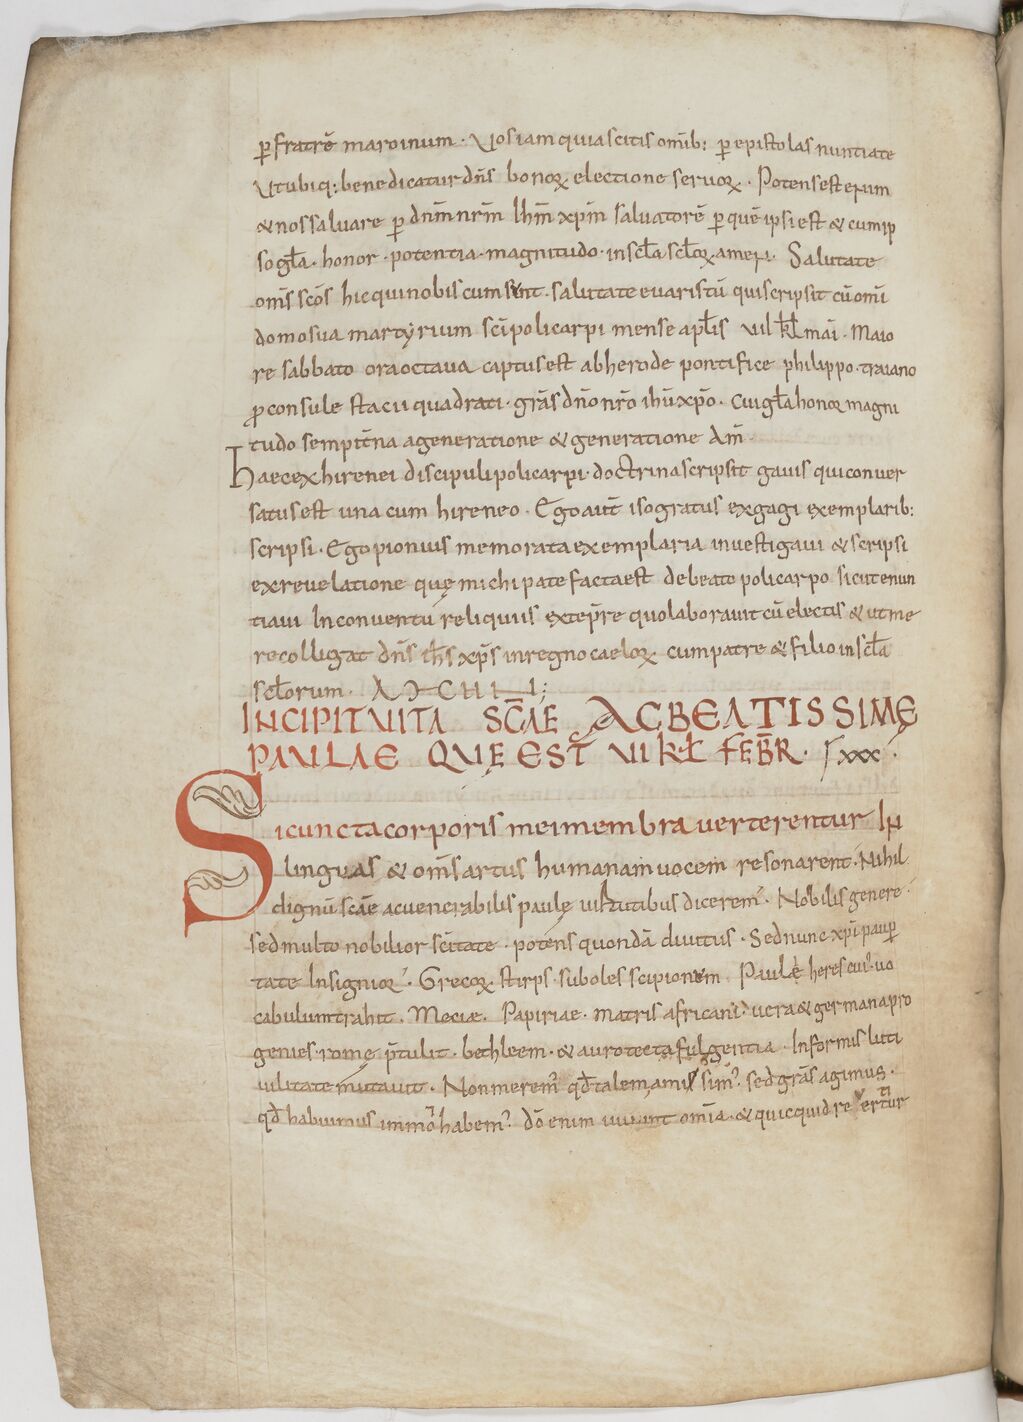 ꝑ fratrē marcinum · Vos iam quia scitis omīb: ꝑ epistolas nuntiate
Vt ubiq: benedicatur dn̄s bonoꝝ electione seruoꝝ · Potens est enim
& nos saluare ꝑ dn̄m nr̄m Ih̄m xp̄m saluatorē ꝑ quē ipsi est & cum ip
so gl̄a · honor · potentia · magnitudo · in scl̄a scl̄oꝝ · amen · Salutate
om̄s sc̄os hic qui nobiscum sunt · salutate euaristū qui scripsit cū om̄i
domo sua martyrium sc̄i policarpi mense apl̄is VII kl̄ mai · Maio
re sabbato ora octaua captus est ab herode pontifice philippo · traiano
ꝓconsule stacii quadrati · gr̄as dn̄o nr̄o ih̄u xp̄o · Cui gl̄a honor magni
tudo sempit̄na a generatione & generatione Am̄
Haec ex hirenei discipuli policarpi · doctrina scripsit gaius qui conuer
satus est una cum hireneo · Ego aut̄ isogratus ex gagi exemplarib:
scripsi · Ego pionius memorata exemplaria inuestigaui & scripsi
ex reuelatione quę michi patefacta est de beato policarpo sicut enun
tiaui In conuentū reliquiis ex tēpre quo laborauit cū electis & ut me
recolligat dn̄s ih̄s xp̄s in regno caeloꝝ cum patre & filio in scl̄a
scl̄orum ·
INCIPIT VITA SC̄AE AC BEATISSIMĘ
PAULAE QUĘ EST VI KL̄ FEB̄R ·
Si cuncta corporis mei membra uerterentur In
linguas & om̄s artus humanam uocem resonarent · Nihil
dignū sc̄ae ac uenerabilis paulę uirtutibus dicerem̄ · Nobilis genere ·
sed multo nobilior sc̄itate · potens quondā diuitiis · Sed nunc xp̄i pauꝑ
tate Insignior · Grecoꝝ stirps · suboles scipionem Paule heres cui᾽ uo
cabulum trahit · Meciae · Papiriae · matris africani · uera & germana pro
genies · romę p̄tulit · bethleem · & auro tecta fulgentia · Informis luti
uilitate mutauit · Non merem᾽ qd̄ talem amisim᾽ · sed gr̄as agimus ·
qd̄ habuimus immo habem᾽ · dō enim uiuunt om̄ia · & quicquid reuertitur